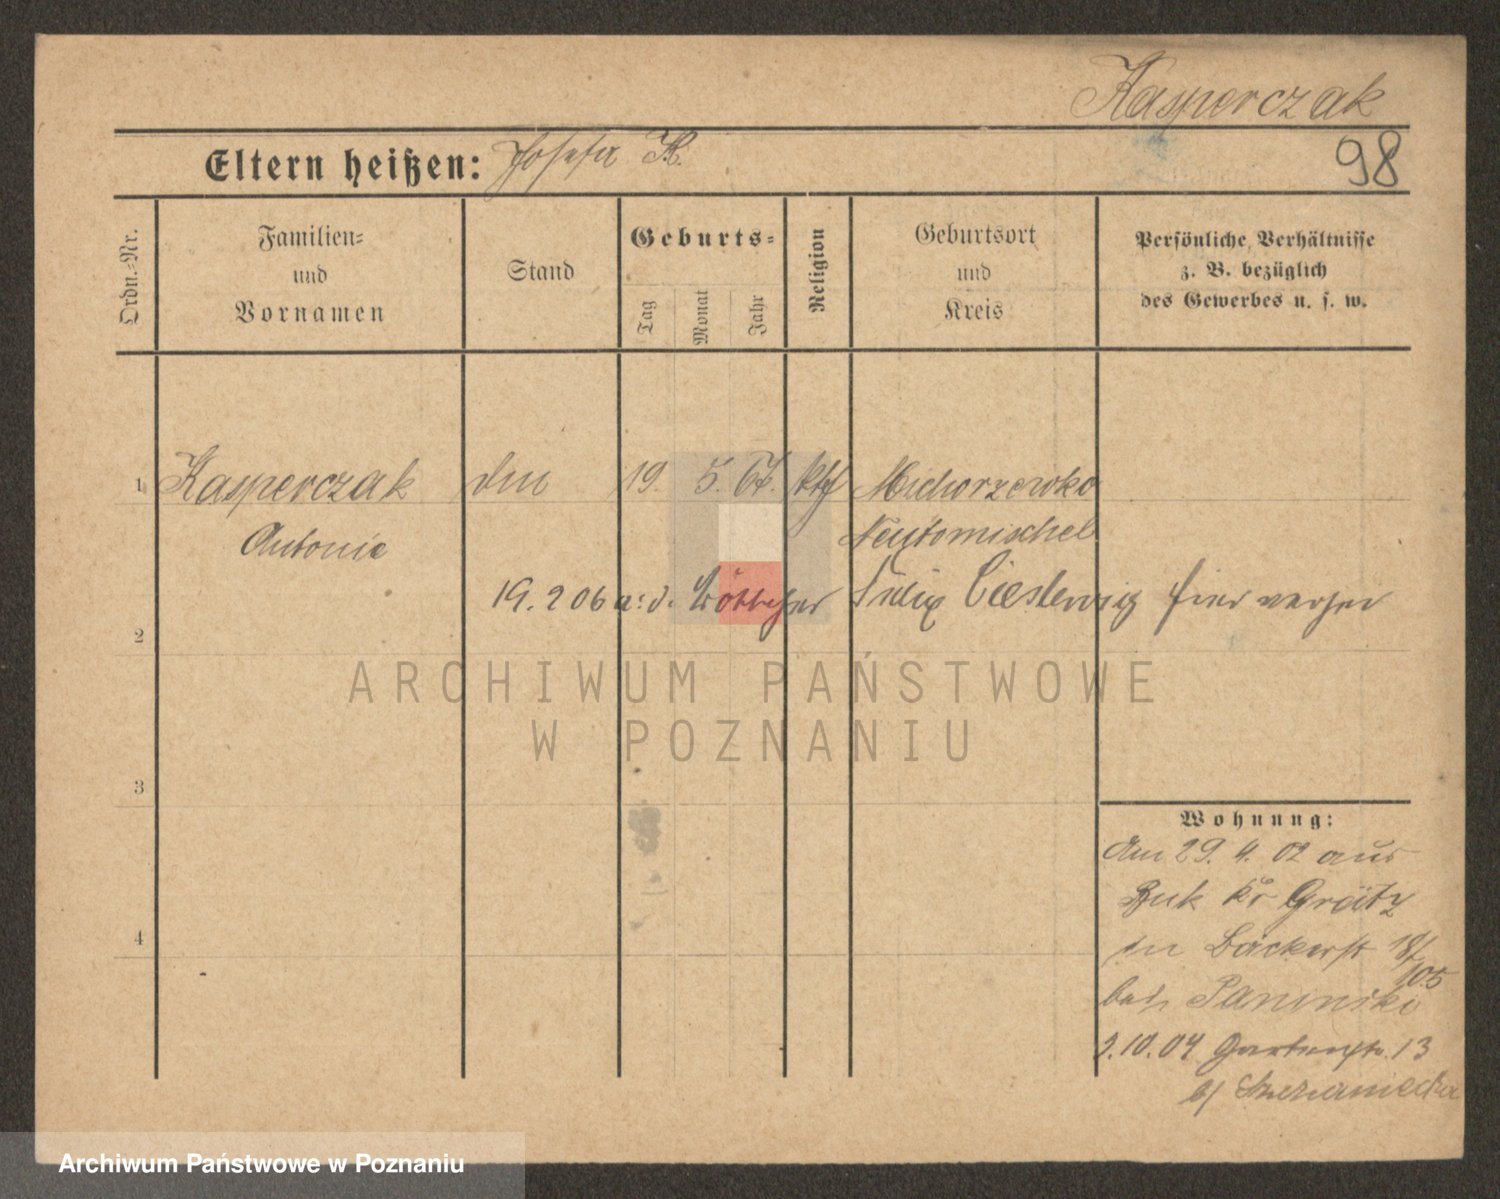 Kasperczak
98
Eltern heißen: Josefa K.
Ordn.-Nr.
Familien-
und
Vornamen
Stand
Geburts-
Tag
Monat
Jahr
Religion
Geburtsort
und
Kreis
Persönliche Verhältnisse
z. B. bezüglich
des Gewerbes u. s. w.
1 Kasperczak 19. 5. 67. kth Michorzewko
Antonie Neutomischel
19.2 06 a. d. Böttcher Cieslewicz hier
2
ARCHIWUM PAŃSTWOWE
W POZNANIU
3
4
Wohnung:
Am 29. 4. 02 aus
Buk Kr Grätz
in Bäckerst 18/
105
bei
2.10.04 Gartenstr. 13
b/
Archiwum Państwowe w Poznaniu